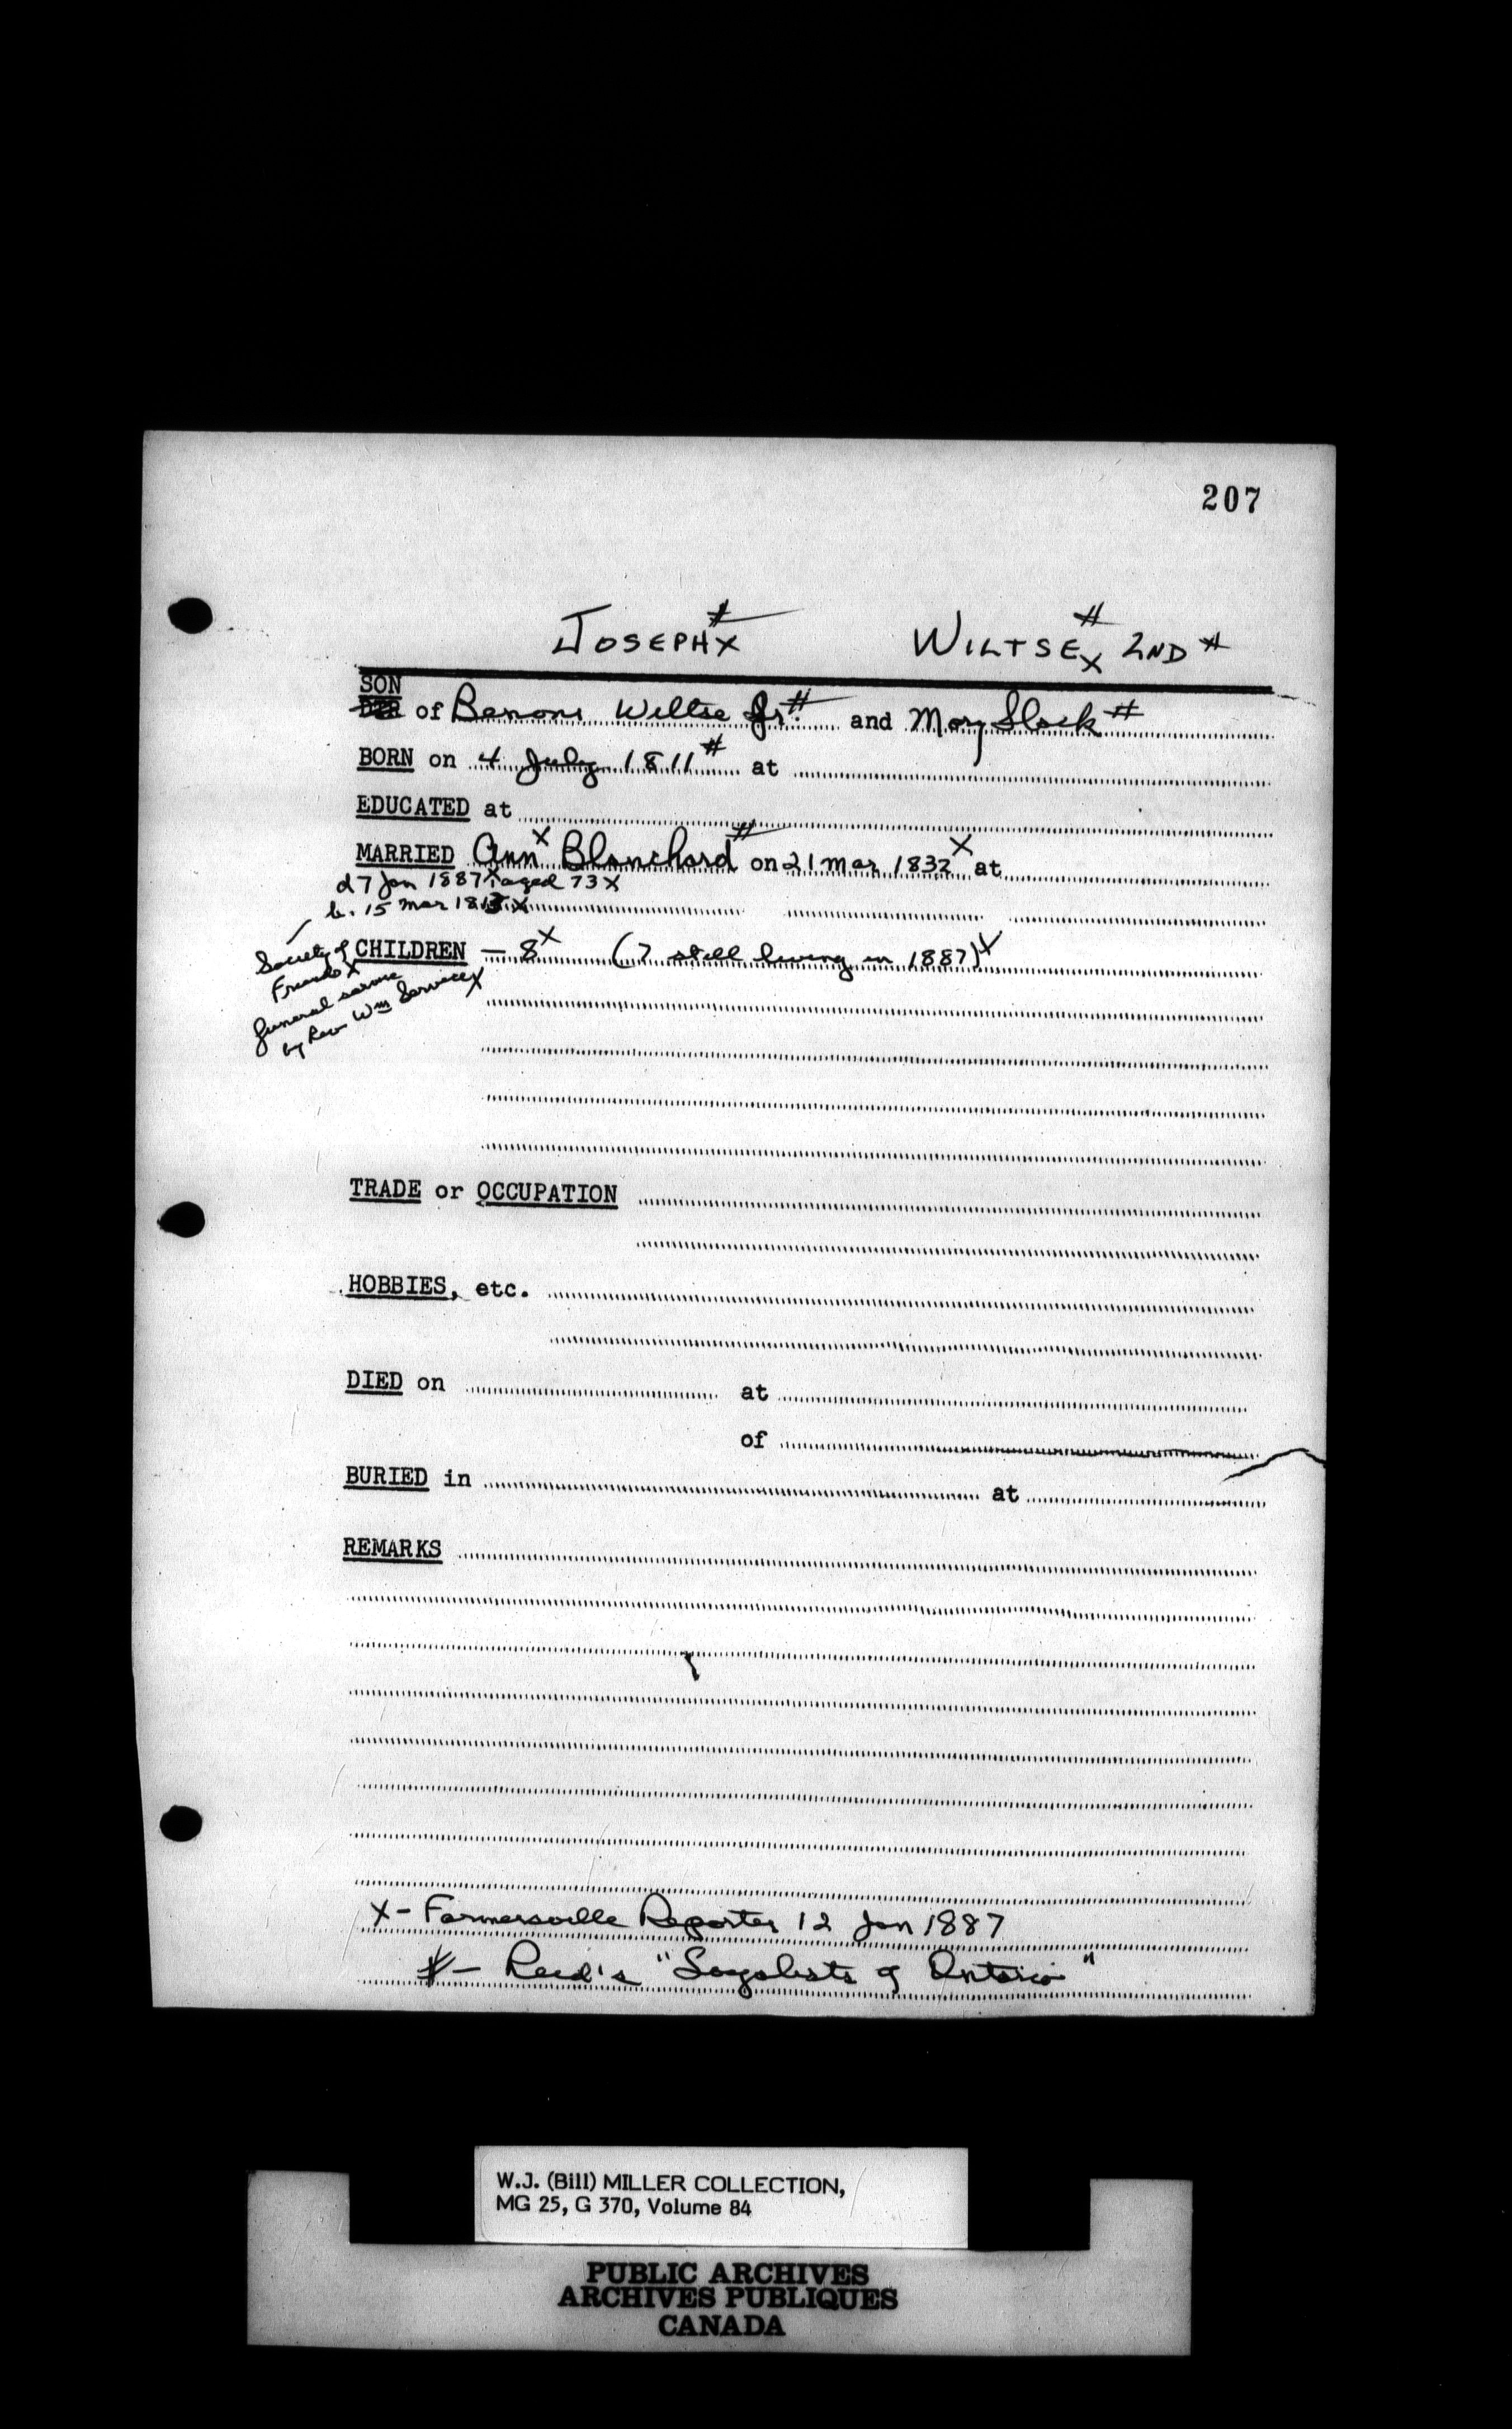 207
JOSEPH # X WILTSE # X 2ND #
SON
DTR of Benoni Wiltse Jr. # and Mary Slack #
BORN on 4 July 1811 # at
EDUCATED at
MARRIED Ann X Blanchard # on 21 Mar 1832 X at
d 7 Jan 1887 X aged 73 X
b. 15 Mar 1813 X
CHILDREN — 8 X (7 still living in 1887) X
Society of
Friends X
funeral service
by Rev Wm Service X
TRADE or OCCUPATION
HOBBIES, etc.
DIED on at
of
BURIED in at
REMARKS
X - Farmersville Reporter 12 Jan 1887
# - Reid's "Loyalists of Ontario"
W.J. (Bill) MILLER COLLECTION,
MG 25, G 370, Volume 84
PUBLIC ARCHIVES
ARCHIVES PUBLIQUES
CANADA